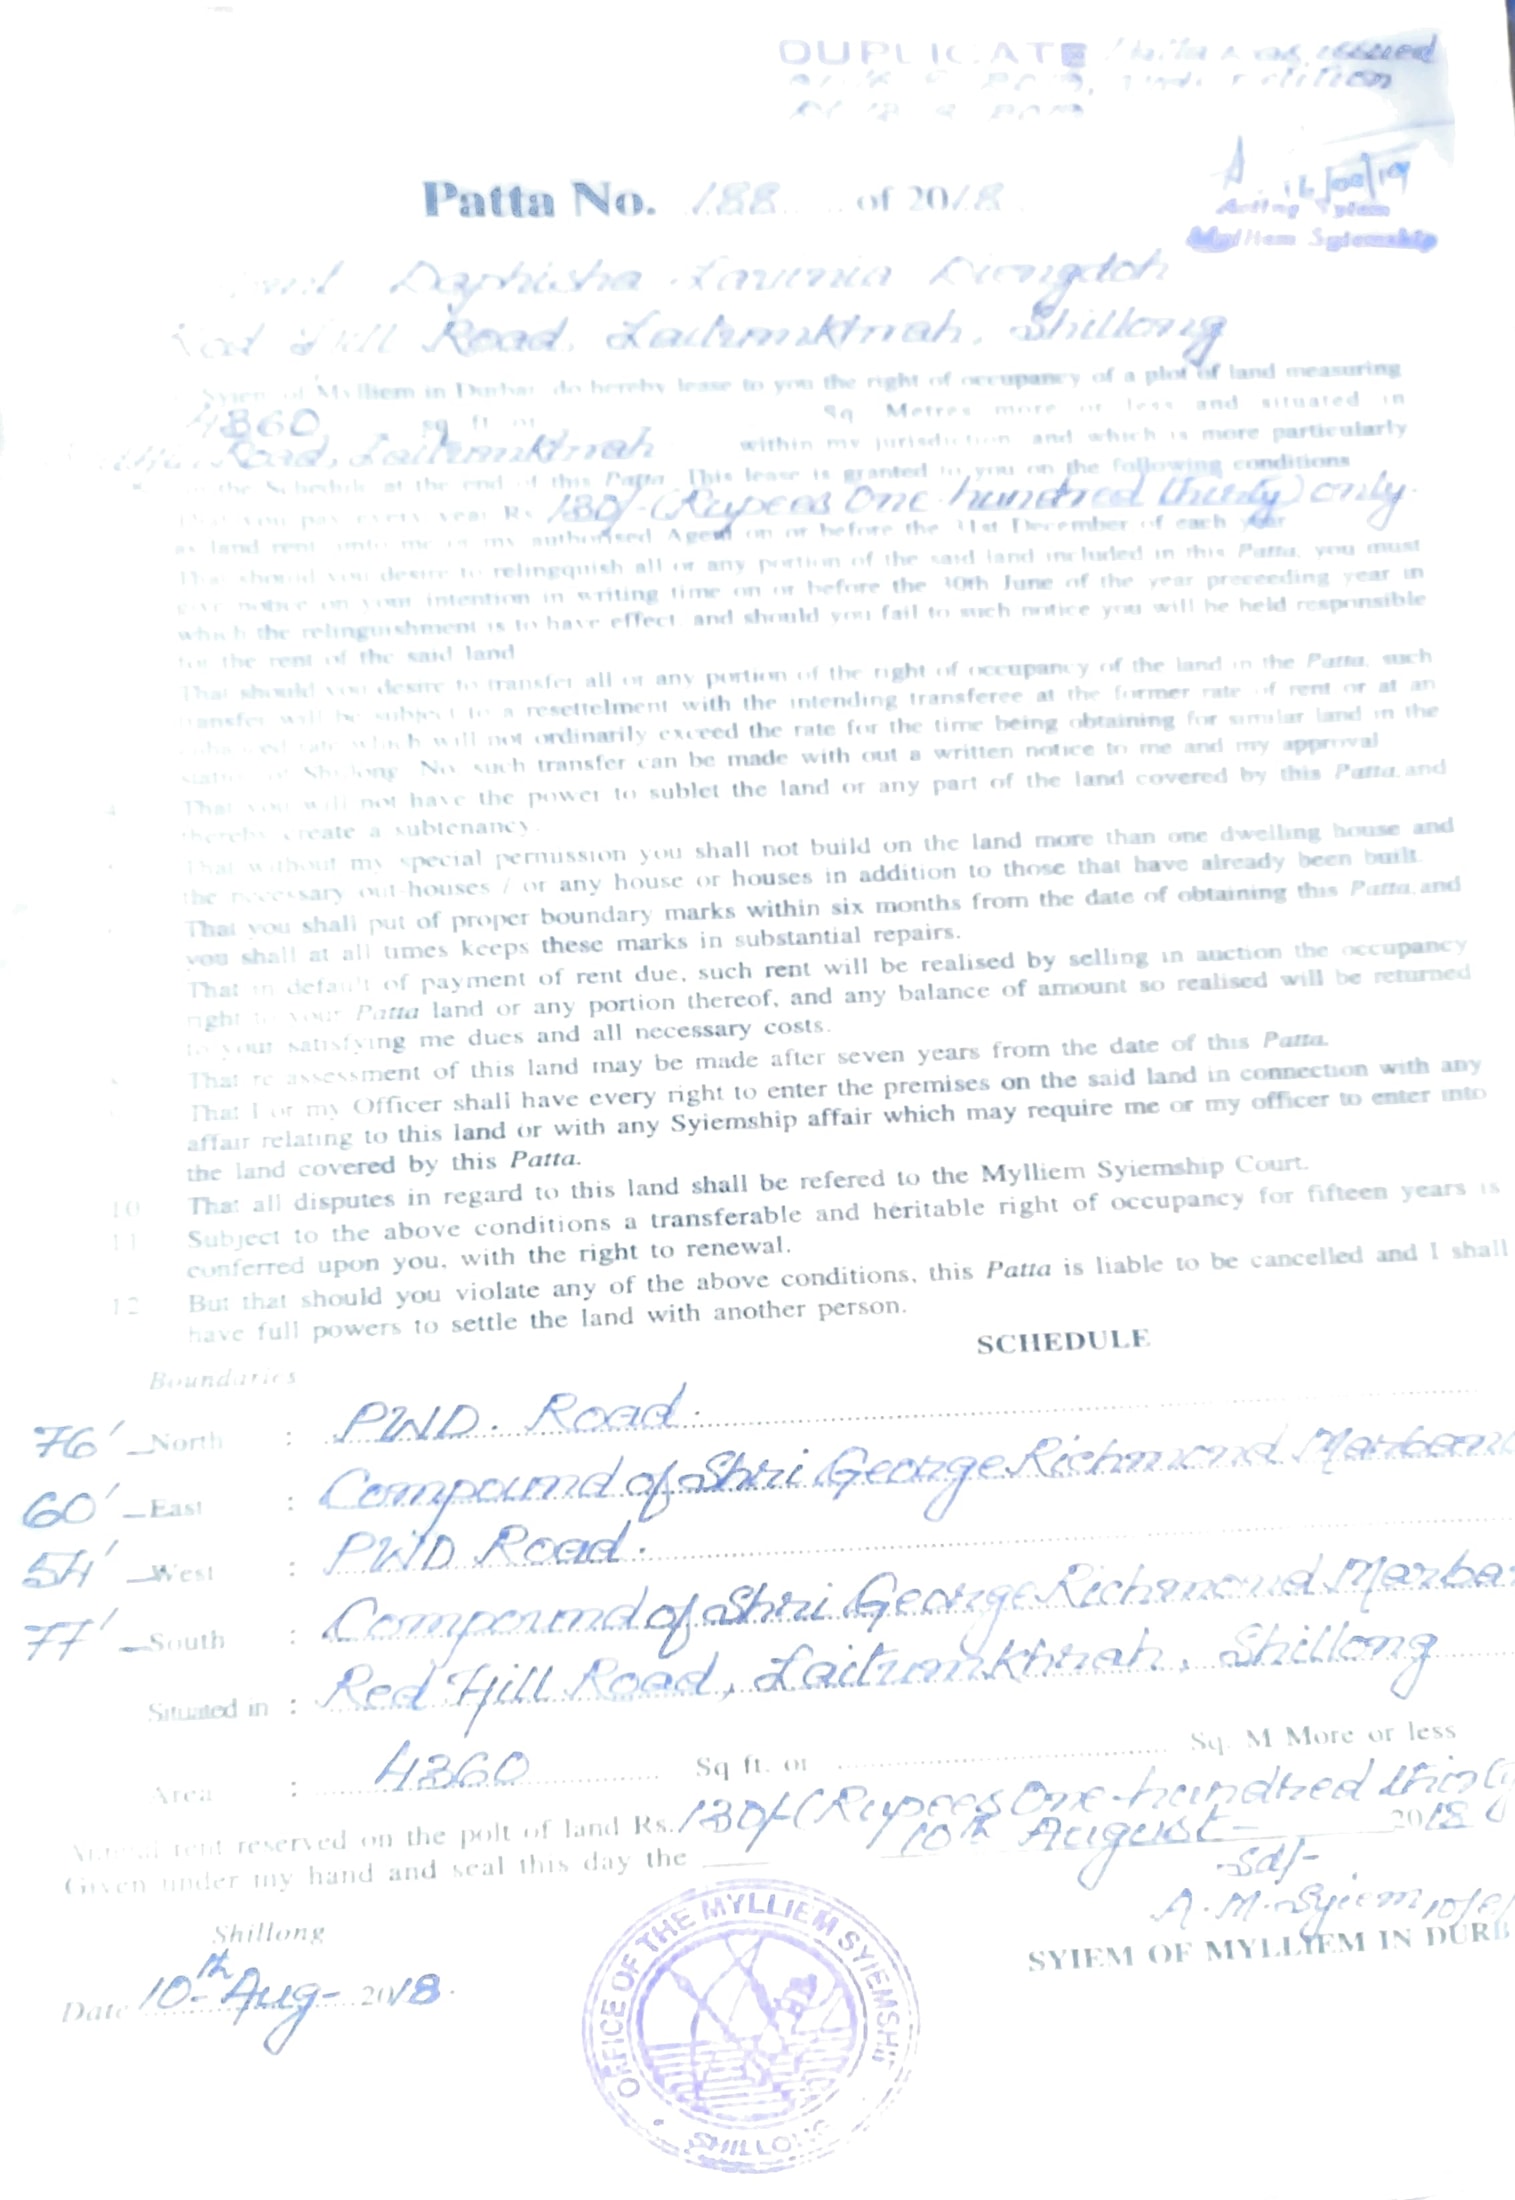 DUPLICATE Patta was issued
Patta No. 188 of 2018
16/08/19
Acting Syiem
Mylliem Syiemship
Daphisha Lavinia Diengdoh
Red Hill Road, Laitumkhrah, Shillong
Syiem of Mylliem in Durbar do hereby lease to you the right of occupancy of a plot of land measuring
4360 sq ft or Sq Metres more or less and situated in
Road, Laitumkhrah within my jurisdiction and which is more particularly
in the Schedule at the end of this Patta. This lease is granted to you on the following conditions
That you pay every year Rs 130/- (Rupees One hundred thirty) only.
as land rent unto me or my authorised Agent on or before the 31st December of each year
That should you desire to relingquish all or any portion of the said land included in this Patta, you must
give notice on your intention in writing time on or before the 30th June of the year preceeding year in
which the relinguishment is to have effect, and should you fail to such notice you will be held responsible
for the rent of the said land
That should you desire to transfer all or any portion of the right of occupancy of the land in the Patta, such
transfer will be subject to a resettelment with the intending transferee at the former rate of rent or at an
enhanced rate which will not ordinarily exceed the rate for the time being obtaining for similar land in the
station of Shillong. No such transfer can be made with out a written notice to me and my approval
4 That you will not have the power to sublet the land or any part of the land covered by this Patta and
thereby create a subtenancy.
That without my special permission you shall not build on the land more than one dwelling house and
the necessary out-houses / or any house or houses in addition to those that have already been built.
That you shall put of proper boundary marks within six months from the date of obtaining this Patta and
you shall at all times keeps these marks in substantial repairs.
That in default of payment of rent due, such rent will be realised by selling in auction the occupancy
right to your Patta land or any portion thereof, and any balance of amount so realised will be returned
to your satisfying me dues and all necessary costs.
That re assessment of this land may be made after seven years from the date of this Patta.
That I or my Officer shall have every right to enter the premises on the said land in connection with any
affair relating to this land or with any Syiemship affair which may require me or my officer to enter into
the land covered by this Patta.
10 That all disputes in regard to this land shall be refered to the Mylliem Syiemship Court.
11 Subject to the above conditions a transferable and heritable right of occupancy for fifteen years is
conferred upon you, with the right to renewal.
12 But that should you violate any of the above conditions, this Patta is liable to be cancelled and I shall
have full powers to settle the land with another person.
SCHEDULE
Boundaries
76' - North : PWD. Road.
60' - East : Compound of Shri George Richmond Marbani
54' - West : PWD Road.
77' - South : Compound of Shri George Richmond Marba
Situated in : Red Hill Road, Laitumkhrah, Shillong
Area : 4360 Sq ft. or Sq. M More or less
Annual rent reserved on the polt of land Rs. 130/- (Rupees One hundred thirty
Given under my hand and seal this day the 10th August - 2018
Sd/-
A. M. Syiem 10/8/
SYIEM OF MYLLIEM IN DURB
Shillong
Date 10th Aug - 2018.
OFFICE OF THE MYLLIEM SYIEMSHIP
SHILLONG